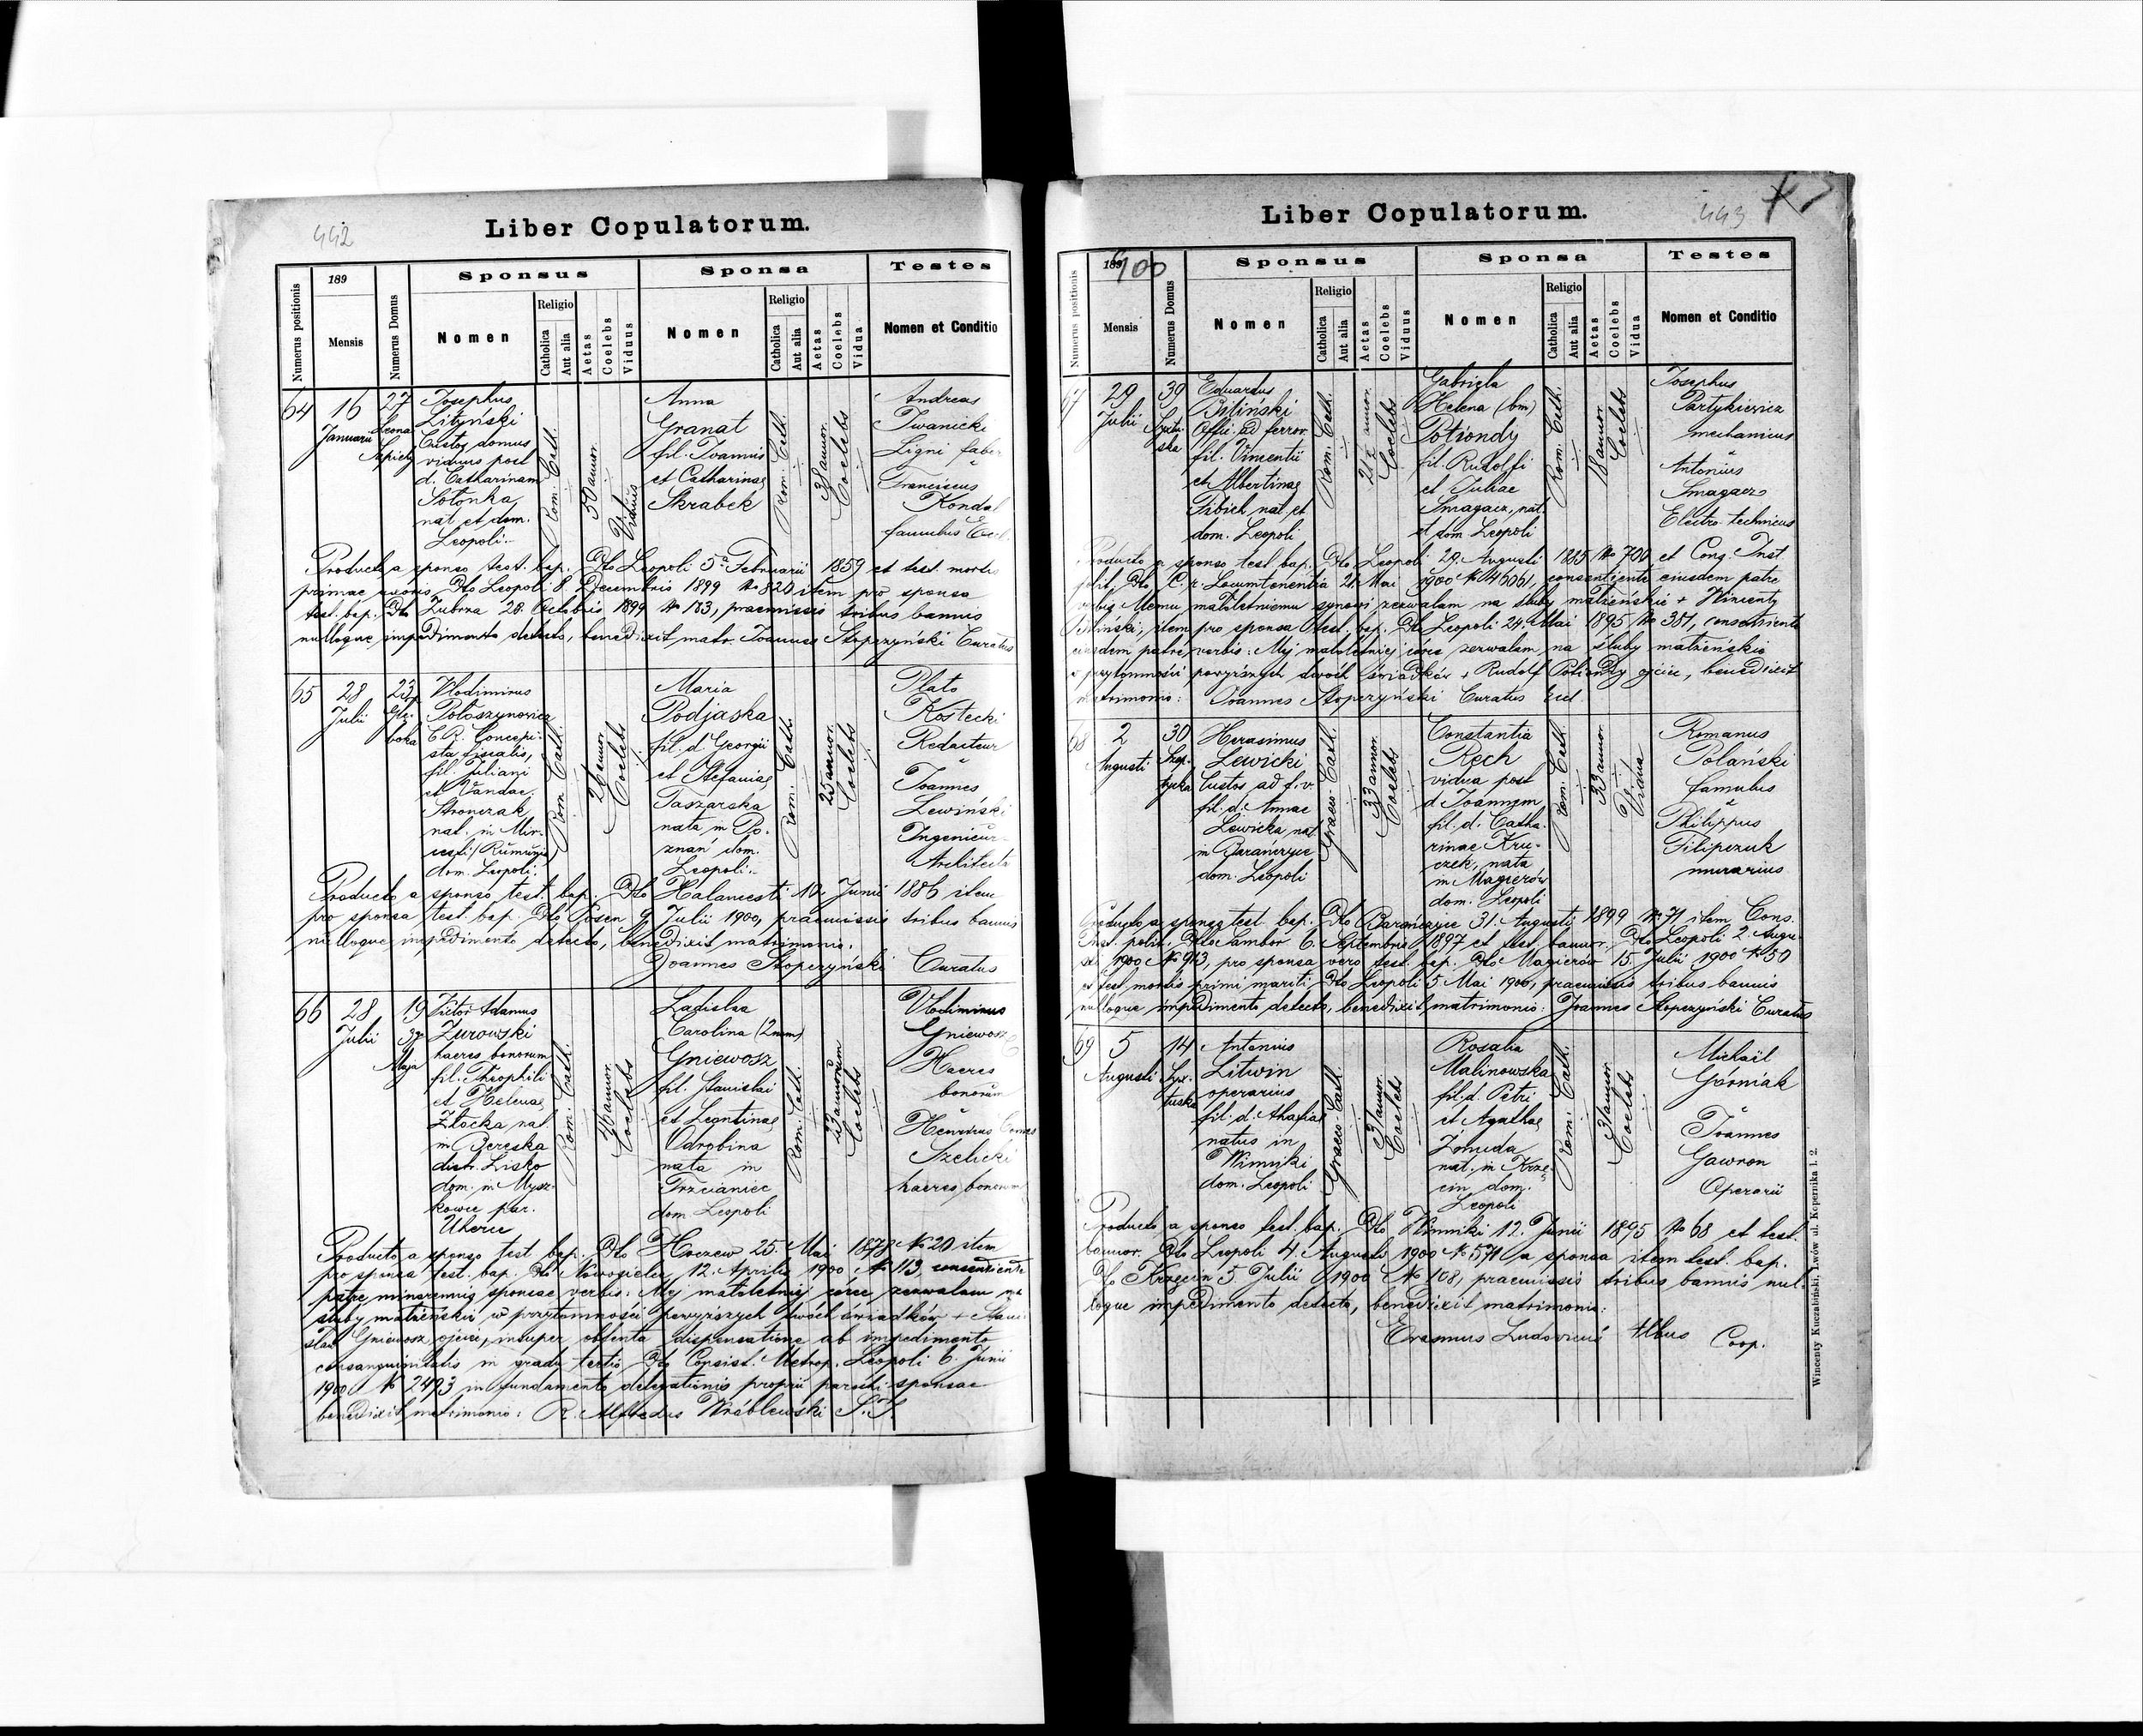 442
Liber Copulatorum.
Numerus positionis
189
Mensis
Numerus Domus
Sponsus
Nomen
Religio
Catholica
Aut alia
Aetas
Coelebs
Viduus
Sponsa
Nomen
Religio
Catholica
Aut alia
Aetas
Coelebs
Vidua
Testes
Nomen et Conditio
64
16
Januarii
27
Leona
Sapiehy
Josephus
Lityński
Custos domus
viduus post
d. Catharinam
Sotonka,
nat. et dom.
Leopoli.
Rom. Cath.
50 annor.
Viduus
Anna
Granat
fil. Joannis
et Catharinae
Skrabek
Rom. Cath.
38 annor.
Coelebs
Andreas
Iwanicki
Ligni faber
Franciscus
Kondal
famulus Eccl.
Producto a sponso test. bap. Dto Leopoli 5a Februarii 1859 et test. mortis
primae uxoris Dto Leopoli 8 Decembris 1899 No 820 item pro sponsa
test. bap. Dto Zubrza 28. Octobris 1899 No 183, praemissis tribus bannis
nulloque impedimento detecto, benedixit matr. Joannes Stopczyński Curatus
65
28
Julii
23
Głę-
boka
Vlodimirus
Potoszynowicz
C.R. Concepi-
sta fiscalis,
fil. Juliani
et Vandae
Stronczak
nat. in Mir-
cesti (Rumunia)
dom. Leopoli.
Rom. Cath.
26 annor.
Coelebs
Maria
Podjaska
fil. d. Georgii
et Stefaniae
Taszarska
nata in Po-
znań dom.
Leopoli.
Rom. Cath.
25 annor.
Coelebs
Plato
Kostecki
Redacteur
Joannes
Lewiński
Ingenieur-
Architecte
Producto a sponso test. bap. Dto Halancesti 10. Junii 1886 item
pro sponsa test. bap. Dto Posen 9 Julii 1900, praemissis tribus bannis
nulloque impedimento detecto, benedixit matrimonio.
Joannes Stopczyński Curatus
66
28
Julii
19
3go
Maja
Victor Adamus
Żurowski
haeres bonorum
fil. Theophili
et Helenae
Złocka nat.
in Bereska
distr. Lisko
dom. in Mysz-
kowce par.
Uherce
Rom. Cath.
46 annor.
Coelebs
Ladislaa
Carolina (2nom)
Gniewosz
fil. Stanislai
et Leontinae
Odrobina
nata in
Trzcianiec
dom Leopoli
Rom. Cath.
23 annorum
Coelebs
Vlodimirus
Gniewosz
Haeres
bonorum
Henricus Comes
Szelicki
haeres bonorum
Producto a sponso test. bap. Dto Hoczew 25. Mai 1878 No 20 item
pro sponsa test. bap. Dto Nowogielec 12. Aprilis 1900 No 113, consentiente
patre minorennis sponsae verbis: Mej małoletniej córce zezwalam na
śluby małżeńskie w przytomności powyższych dwóch świadków + Stani
sław Gniewosz ojciec, insuper obtenta dispensatione ab impedimento
consanguinitatis in gradu tertio Dto Consist. Metrop. Leopoli 6. Junii
1900 No 2493 in fundamento delegationis proprii parochi sponsae
benedixit matrimonio: R. Alfredus Wróblewski S.J.
443
Liber Copulatorum.
Numerus positionis
189
900
Mensis
Numerus Domus
Sponsus
Nomen
Religio
Catholica
Aut alia
Aetas
Coelebs
Viduus
Sponsa
Nomen
Religio
Catholica
Aut alia
Aetas
Coelebs
Vidua
Testes
Nomen et Conditio
67
29
Julii
39
Eduardus
Biliński
Offic. ad ferror.
fil. Vincentii
et Albertinae
Fibich nat. et
dom. Leopoli
Rom. Cath.
annor.
Coelebs
Gabriela
Helena (bin)
Potiondy
fil. Rudolfi
et Juliae
Smagacz, nat.
et dom Leopoli
Rom. Cath.
18 annor.
Coelebs
Josephus
Partykiewicz
mechanicus
Antonius
Smagacz
Electro-technicus
Producto a sponso test bap. Dto Leopoli 29. Augusti 1885 No 700, et Cons. Inst
polit. Dto C. r. Locumtenentia 21. Mai 1900 No 46061, consentiente eiusdem patre
verbis Memu małoletniemu synowi zezwalam na śluby małżeńskie + Wincenty
Biliński; item pro sponsa test. bap. Dto Leopoli 24. Mai 1895 No 381, consentiente
eiusdem patre verbis: Mej małoletniej córce zezwalam na śluby małżeńskie
w przytomności powyższych dwóch świadków + Rudolf Potiondy ojciec, benedixit
matrimonio: Joannes Stopczyński Curatus Eccl.
68
2
Augusti
30
Szep-
tycka
Herasimus
Lewicki
Custos ad f.v.
fil. d. Annae
Lewicka nat
in Barańczyce
dom. Leopoli
Graeco-Cath.
33 annor.
Coelebs
Constantia
Rech
vidua post
d Joannem
fil. d. Catha-
rinae Kru-
czek, nata
in Magierów
dom. Leopoli
Rom. Cath.
33 annor.
Vidua
Romanus
Polański
famulus
Philippus
Filipczuk
murarius
Producto a sponso test. bap. Dto Barańczyce 31. Augusti 1899 No 71 item Cons.
Inst. polit. Dto Sambor 6. Septembris 1897 et test. bannor. Dto Leopoli 2. Augu-
sti 1900 No 913, pro sponsa vero test. bap. Dto Magierów 15. Julii 1900 No 50
et test mortis primi mariti Dto Leopoli 5 Mai 1900, praemissis tribus bannis
nulloque impedimento detecto, benedixit matrimonio: Joannes Stopczyński Curatus
69
5
Augusti
14
Antonius
Litwin
operarius
fil. d. Ahafiae
natus in
Winniki
dom. Leopoli
Graeco-Cath.
31 annor.
Coelebs
Rosalia
Malinowska
fil. d. Petri
et Agathae
Zomuda
nat. in Krzę-
cin dom.
Leopoli
Rom. Cath.
31 annor.
Coelebs
Michaël
Górniak
Joannes
Gawron
Operarii
Producto a sponso test. bap. Dto Winniki 12. Junii 1895 No 68 et test.
bannor. Dto Leopoli 4. Augusti 1900 No 571 a sponsa item test. bap.
Dto Krzęcin 5. Julii 1900 No 108, praemissis tribus bannis nul-
loque impedimento detecto, benedixit matrimonio:
Erasmus Ludovicus Albus Coop.
Wincenty Kuczabiński, Lwów ul. Kopernika l. 2.